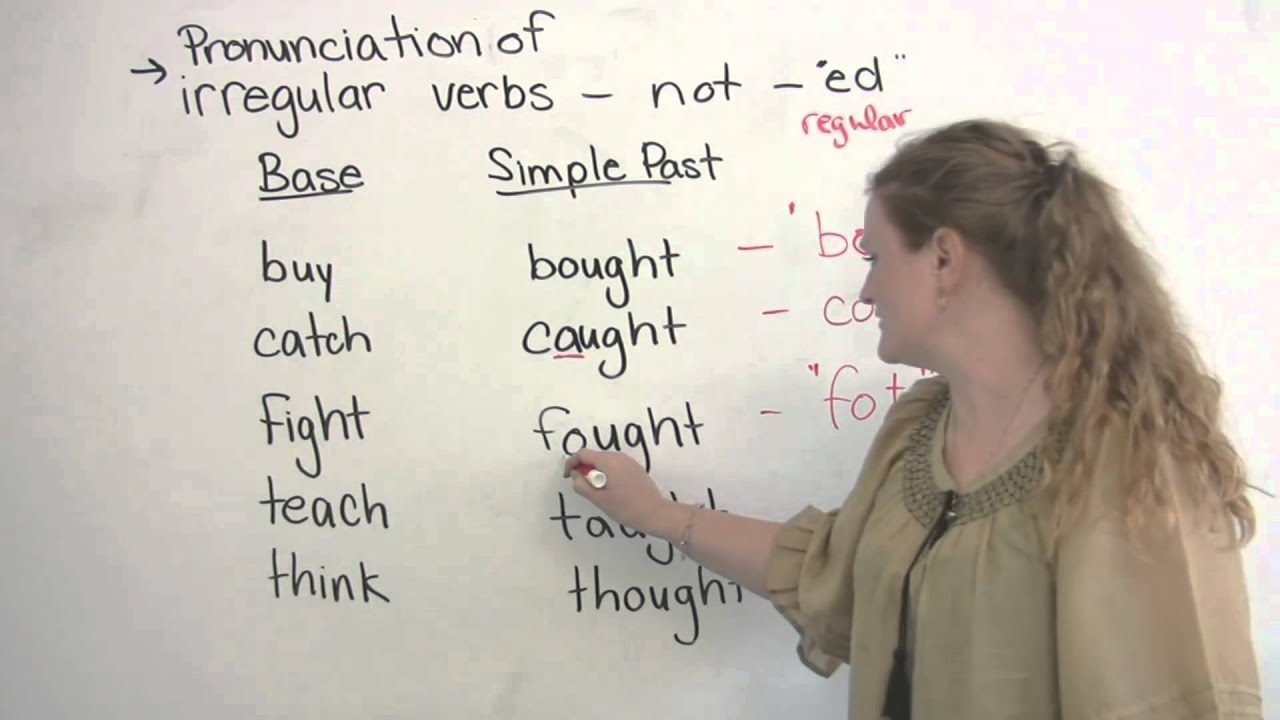 → Pronunciation of
irregular verbs - not - "ed"
regular
Base Simple Past
buy bought -
catch caught -
fight fought - "fot"
teach taught
think thought